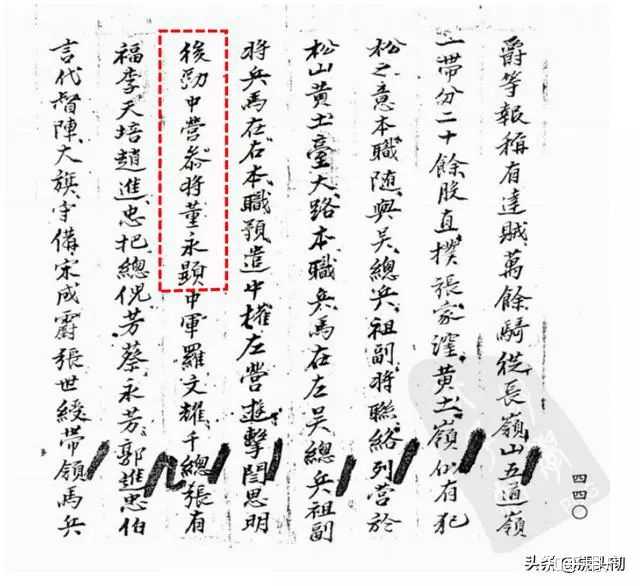 爵等報稱有達賊萬餘騎從長嶺山五通嶺
一帶分二十餘股直撲張家窪黃土嶺似有犯
松之意本職隨與吳總兵祖副將聯絡列營於
松山黃土臺大路本職兵馬在左吳總兵祖副
將兵馬在右本職預遣中權左營遊擊閻思明
後勁中營叅將董永顯中軍羅文耀千總張有
福李天培趙進忠把總倪芳蔡永芳郭進忠伯
言代督陣大旗守備宋成爵張世綬帶領馬兵
四四〇
头条